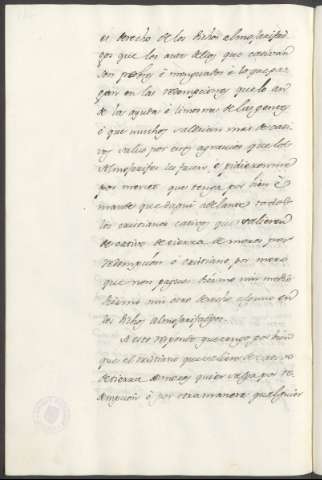 el derecho de los dichos almoxarifad
gos que los auer dellos que cativan
son pobres é menguados é lo que pa
gan en las redempciones que lo an
de las ayuda é limosnas de las gentes
é que muchos saldrian mas de cati
vos salvo por estos agravios que los
Almoxarifes les facen, é pidieronme
por merced que tenga por bien é
mande que daqui adelante todos
los cristianos cativos que salieren
de cativo de tierra de moros por
redempcion ó cristiano por moro
que non paguen diezmo nin medio
diezmo nin otro derecho alguno en
los dichos almoxarifadgos.
A esto respondo que tengo por bien
que el cristiano que saliere de cativo
de tierra de moros quier salga por re
dempcion ó por otra manera qualquier